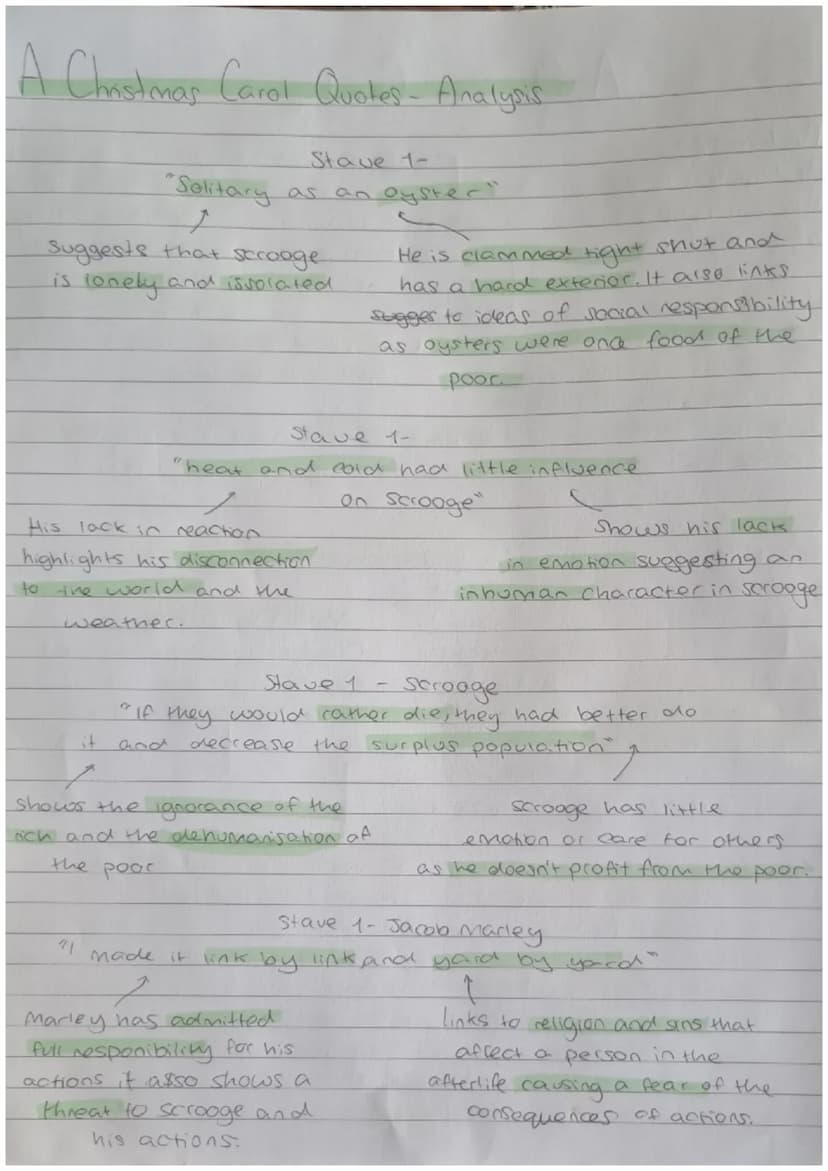 A Christmas Carol Quotes - Analysis
Stave 1-
"Solitary as an oyster"
suggests that scrooge
is lonely and issolated
He is clammed tight shut and
has a hard exterior. It also links
sugges to ideas of social responsibility
as oysters were once food of the
poor.
Stave 1-
"heat and cold had little influence
on scrooge"
His lack in reaction
highlights his disconnection
to the world and the
weather.
Shows his lack
in emotion suggesting an
inhuman character in scrooge
Stave 1 - scrooge
"If they would rather die, they had better do
it and decrease the surplus population"
shows the ignorance of the
rich and the dehumanisation of
the poor
scrooge has little
emotion or care for others
as he doesn't profit from the poor.
Stave 1- Jacob Marley
"I made it link by link and yard by yard"
Marley has admitted
full responibility for his
actions it also shows a
threat to scrooge and
his actions.
links to religion and sins that
affect a person in the
afterlife causing a fear of the
consequences of actions.